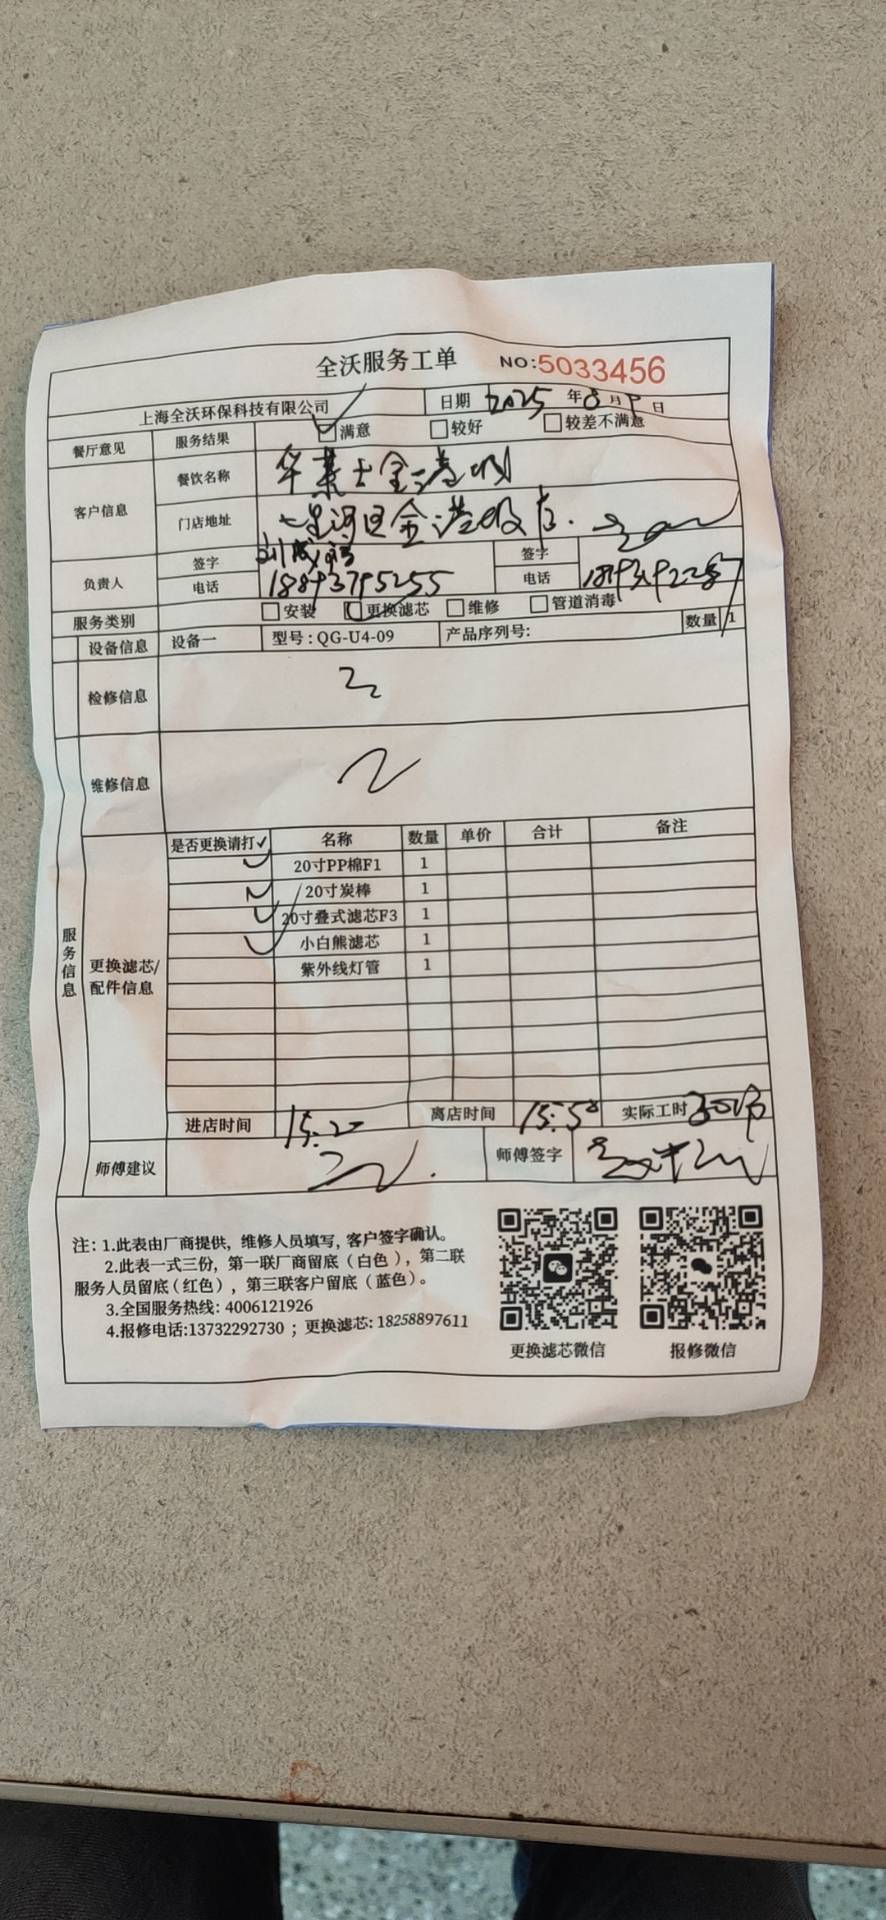 全沃服务工单 NO:5033456
上海全沃环保科技有限公司 日期 2025 年 8 月 9 日
餐厅意见 服务结果 满意 较好 较差不满意
客户信息 餐饮名称 华莱士金港城
门店地址 七星河区金港城店.
负责人 签字 签字
电话 18893795255 电话
服务类别 安装 更换滤芯 维修 管道消毒
设备信息 设备一 型号:QG-U4-09 产品序列号: 数量 1
检修信息
维修信息
服务信息
更换滤芯/配件信息
是否更换请打✓ 名称 数量 单价 合计 备注
✓ 20寸PP棉F1 1
✓ 20寸炭棒 1
✓ 20寸叠式滤芯F3 1
✓ 小白熊滤芯 1
紫外线灯管 1
进店时间 15:20 离店时间 15:50 实际工时
师傅建议 师傅签字
注:1.此表由厂商提供,维修人员填写,客户签字确认。
2.此表一式三份,第一联厂商留底(白色),第二联
服务人员留底(红色),第三联客户留底(蓝色)。
3.全国服务热线:4006121926
4.报修电话:13732292730 ;更换滤芯:18258897611
更换滤芯微信 报修微信